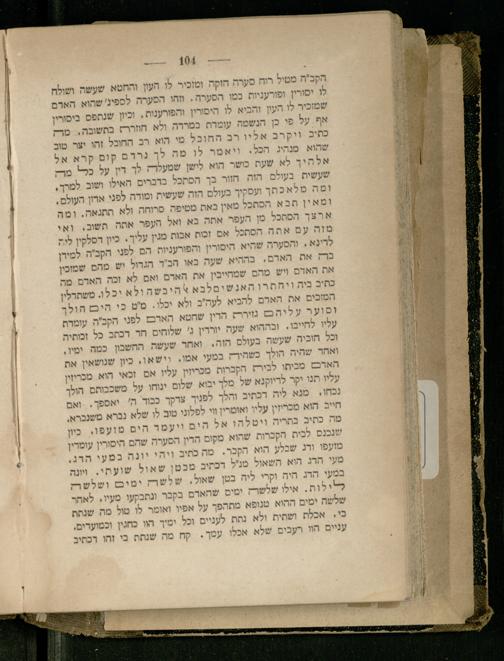 — 104 —
הקב״ח מטיל רוח סערה חזקה ומזכיר לו העון והחטא שעשה ושולח
לו יסורין ופורעניות כמו הסערה. וזהו הסערה לספינ׳ שהוא האדם
שמזכיר לו העון והביא לו היסורין והפורעניות, וכיון שנתפס ביסורין
אף על פי כן הנשמה עומדת במרדה ולא חוזרת בתשובה. מה
כתיב ויקרב אליו רב החובל מי הוא רב החובל זהו יצר טוב
שהוא מנהיג הכל, ויאמר לו מה לך נרדם קום קרא אל
אלהיך לא שעת כושר הוא לישן שמעלה לך דין על כל מה
שעשית בעולם הזה חזור בך הסתכל בדברים האילו ושוב למרך,
ומה מלאכתך ועסקיך בעולם הזה שעשית ומודה לפני אדון העולם,
ומאין תבא הסתכל מאין באת מטיפה סרוחה ולא תתגאה, ומה
ארצך הסתכל מן העפר אתה בא ואל העפר אתה תשוב, ואי
מזה עם אתה הסתכל אם זכות אבות מגין עליך, כיון דסלקין ליה
לדינא, והסערה שהיא היסורין והפורעניות הם לפני הקב״ה למידן
בה את האדם, בההיא שעה באו הב״ד הגדול יש מהם שמזכין
את האדם ויש מהם שמחייבין את האדם ואם לא זכה האדם מה
כתיב ביה ויחתרו האנשים לבא אל היבשה ולא יכלו. משתדלין
המזכים את האדם להביא לעה״ב ולא יכלו. מ״ט כי הים הולך
וסוער עליהם גזירת הדין שחטא האדם לפני הקב״ה עומדת
עליו לחייבו. ובההוא שעה יורדין ג׳ שלוחים חד דכתב כל זכותיה
וכל חוביה שעשה בעולם הזה, ואחד שעשה החשבון כמה ימיו,
ואחד שהיה הולך כשהיה במעי אמו, וישאו, כיון שנושאין את
האדם מביתו לבית הקברות מכריזין עליו אם זכאי הוא מכריזין
עליו תנו יקר לדיוקנא של מלך יבוא שלום ינוחו על משכבותם הולך
נכחו, מנא ליה דכתיב והלך לפניך צדקך כבוד ה׳ יאספך. ואם
חייב הוא מכריזין עליו ואומרין ווי לפלוני טוב לו שלא נברא משנברא,
מה כתיב בתריה ויטלהו אל הים ויעמד הים מזעפו, כיון
שנכנס לבית הקברות שהוא מקום הדין הסערה שהם היסורין עומדין
מזעפו ודג שבלע הוא הקבר. מה כתיב ויהי יונה במעי הדג,
מעי הדג הוא השאול מנ״ל דכתיב מבטן שאול שועתי. ויונה
במעי הדג היה וקרי ליה בטן שאול, שלשה ימים ושלשה
לילות. אילו שלשה ימים שהאדם בקבר ונתבקעו מעיו, לאחר
שלשה ימים ההוא טנופא מתהפך על אפיו ואומר לו טול מה שנתת
בי, אכלת ושתית ולא נתת לעניים וכל ימיך הוו כחגין וכמועדים,
עניים הוו רעבים שלא אכלו עמך. קח מה שנתת בי זהו דכתיב